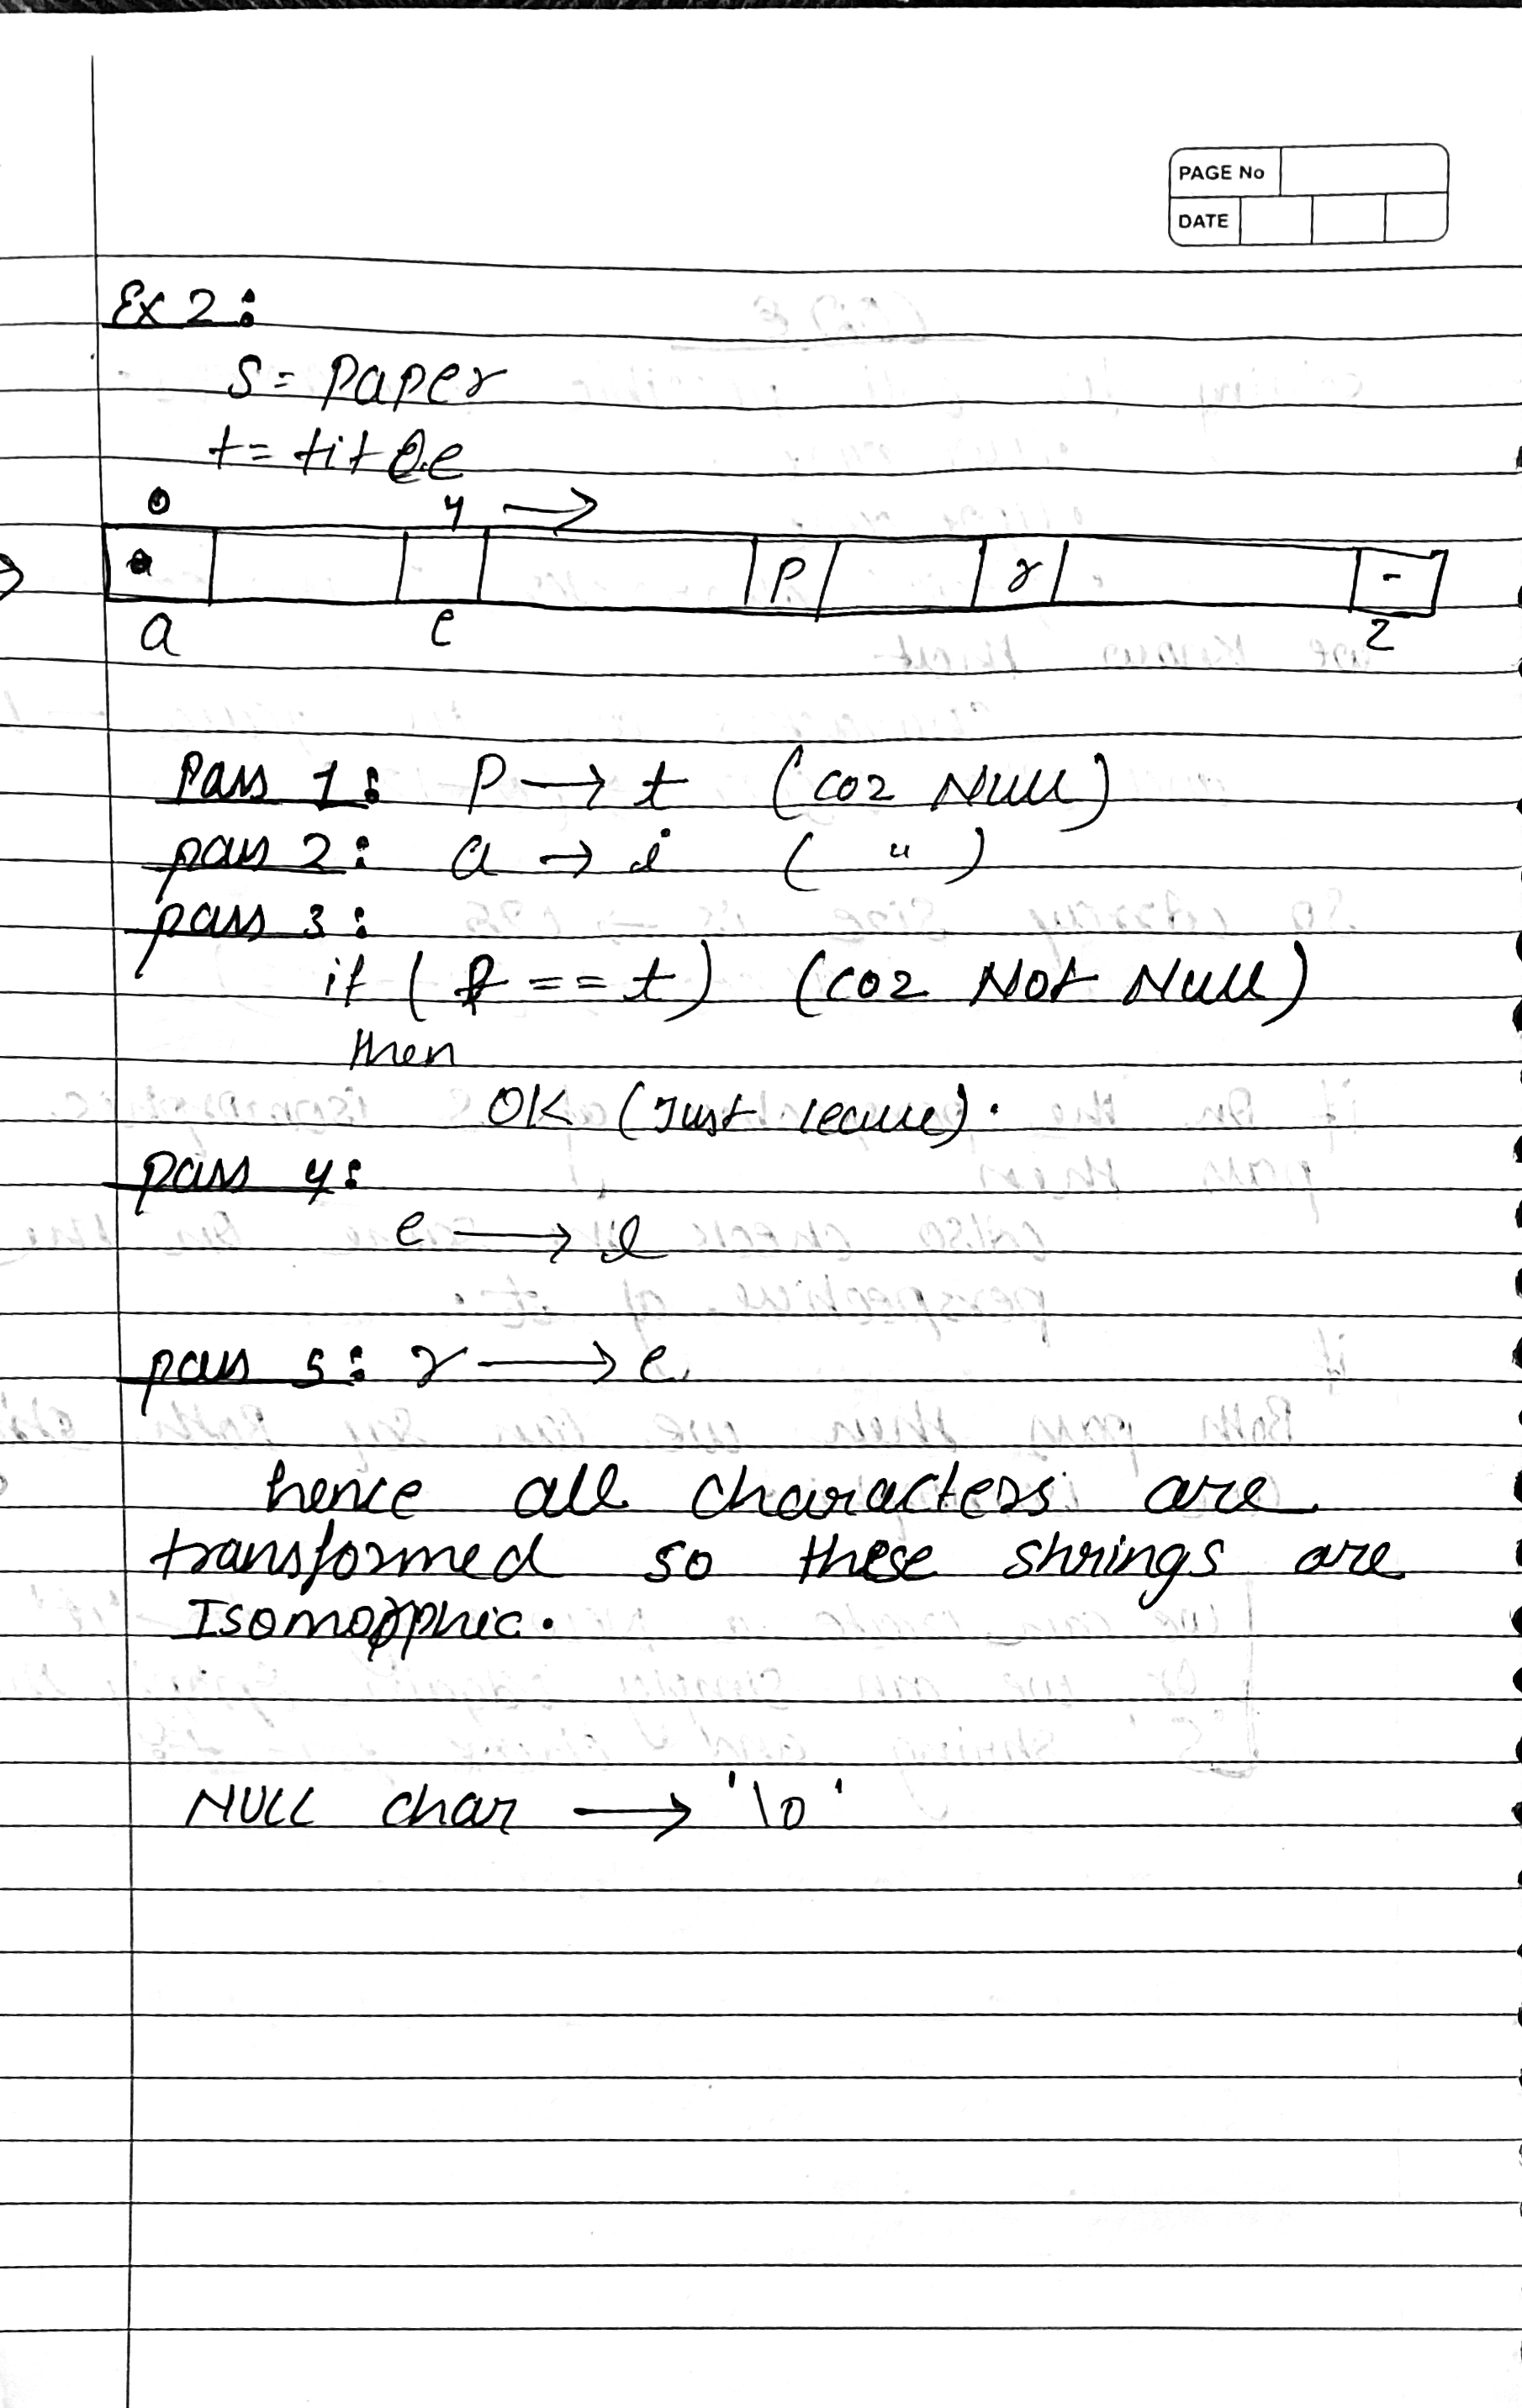 PAGE No
DATE
Ex 2:
s = paper
t = title
0 4 →
a p r -
a e z
Pass 1: P → t (coz Null)
pass 2: a → i ( " )
pass 3:
if ( == t) (coz Not Null)
then
OK (Just leave).
pass 4:
e → l
pass 5: r → e
hence all characters are
transformed so these strings are
Isomorphic.
NULL char → '\0'